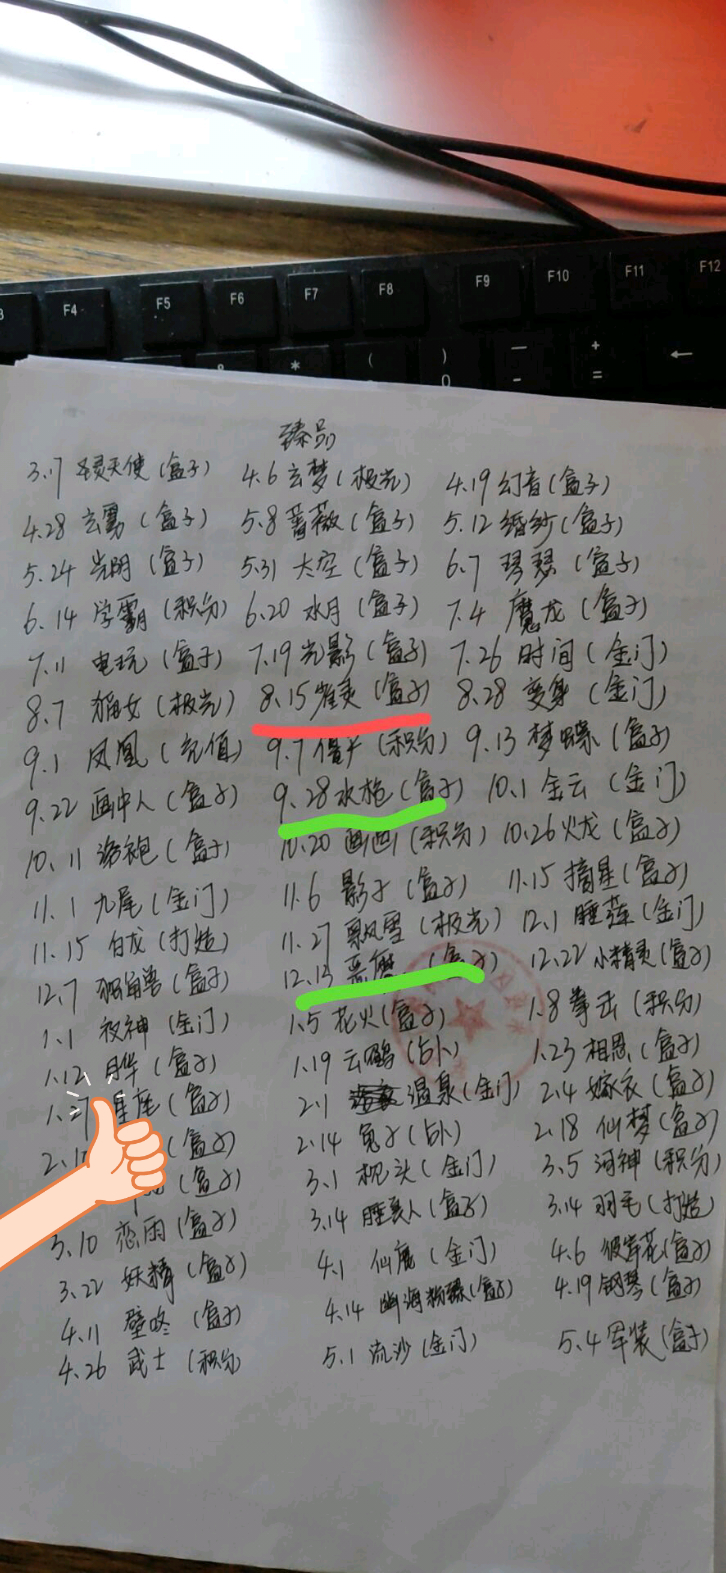 F4 F5 F6 F7 F8 F9 F10 F11 F12
* ( ) — +
0 - = ←
臻品
3.17 圣灵天使(盒子) 4.6 玄梦(极光) 4.19 幻音(盒子)
4.28 玄雾(盒子) 5.8 蔷薇(盒子) 5.12 婚纱(盒子)
5.24 光阴(盒子) 5.31 太空(盒子) 6.7 琴瑟(盒子)
6.14 学霸(积分) 6.20 水月(盒子) 7.4 魔龙(盒子)
7.11 电玩(盒子) 7.19 光影(盒子) 7.26 时间(金门)
8.7 猫女(极光) 8.15 雀灵(盒子) 8.28 变身(金门)
9.1 凤凰(充值) 9.7 僵尸(积分) 9.13 梦蝶(盒子)
9.22 画中人(盒子) 9.28 水枪(盒子) 10.1 金云(金门)
10.11 浴袍(盒子) 10.20 画画(积分) 10.26 火龙(盒子)
11.1 九尾(金门) 11.6 影子(盒子) 11.15 摘星(盒子)
11.15 白龙(打造) 11.27 飘雪(极光) 12.1 睡莲(金门)
12.7 独角兽(盒子) 12.13 恶魔(盒子) 12.22 小精灵(盒子)
1.1 秋神(金门) 1.5 花火(盒子) 1.8 拳击(积分)
1.12 月华(盒子) 1.19 云鹏(占卜) 1.23 相思(盒子)
1.27 星座(盒子) 2.1 温泉(金门) 2.4 嫁衣(盒子)
(盒子) 2.14 兔子(占卜) 2.18 仙梦(盒子)
(盒子) 3.1 枕头(金门) 3.5 河神(积分)
3.10 恋雨(盒子) 3.14 睡美人(盒子) 3.14 羽毛(打造)
3.22 妖精(盒子) 4.1 仙鹿(金门) 4.6 彼岸花(盒子)
4.11 壁咚(盒子) 4.14 幽海粉蝶(盒子) 4.19 钢琴(盒子)
4.26 武士(积分) 5.1 流沙(金门) 5.4 军装(盒子)